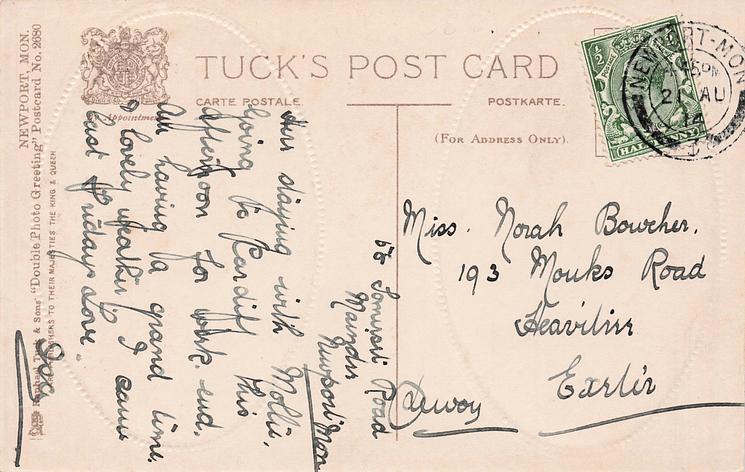 TUCK'S POST CARD
CARTE POSTALE
POSTKARTE.
(FOR ADDRESS ONLY).
By Appointment
NEWPORT, MON.
Raphael Tuck & Sons' "Double Photo Greeting" Postcard No. 2680
TO THEIR MAJESTIES THE KING & QUEEN
½
HALF PENNY
NEWPORT-MON
AU
14
Somerset Road
Maindee
Newport Mon
Am staying with Mollie,
going to Cardiff this
afternoon for week-end.
Am having a grand time,
& lovely weather. I came
last Friday. Love
Miss. Norah Bowcher.
193 Monks Road
Heavitree
Exeter
Devon